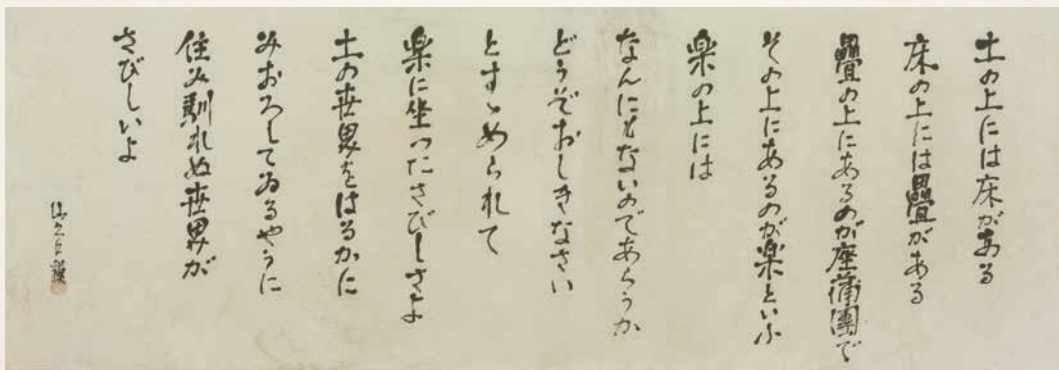 土の上には床がある
床の上には疊がある
疊の上にあるのが座蒲團で
その上にあるのが楽といふ
楽の上には
なんにもないのであらうか
どうぞおしきなさい
とすゝめられて
楽に坐つたさびしさよ
土の世界をはるかに
みおろしてゐるやうに
住み馴れぬ世界が
さびしいよ
山之口貘